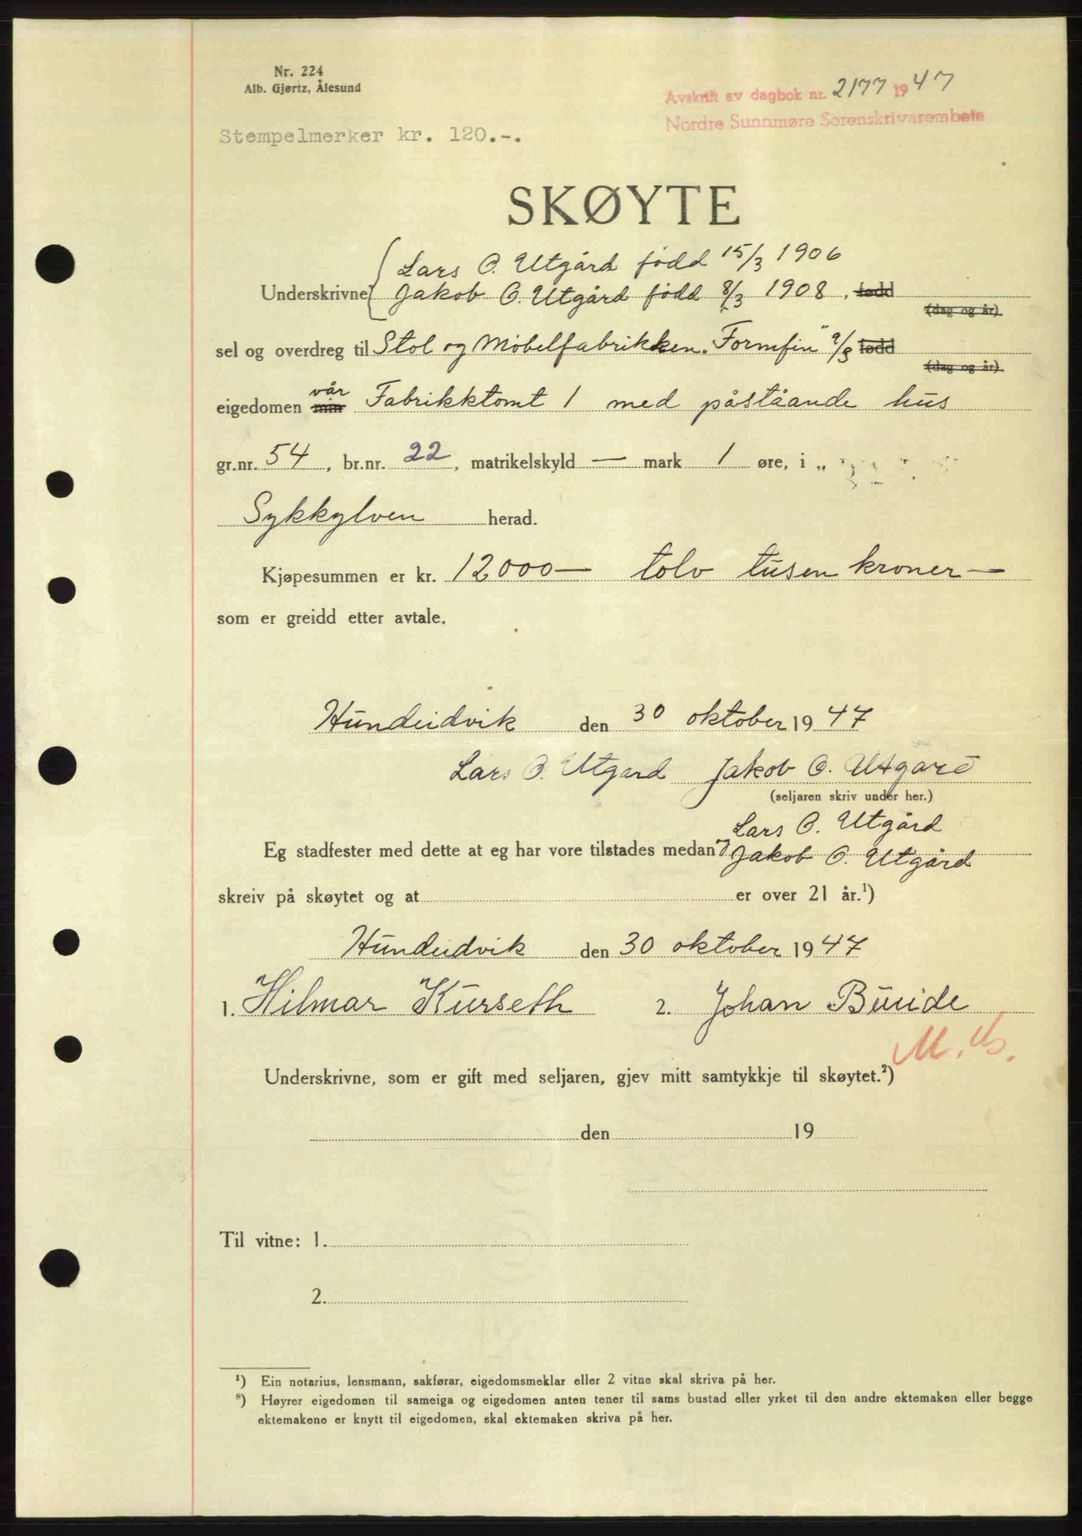 Nr. 224
Alb. Gjørtz, Ålesund
Avskrift av dagbok nr. 2177 1947
Nordre Sunnmøre Sorenskrivarembete
Stempelmerker kr. 120.-.
SKØYTE
Lars O. Utgård född 15/3 1906
Underskrivne Jakob O. Utgård född 8/3 1908, fødd
(dag og år).
sel og overdreg til Stol og Møbelfabrikken "Formfin" a/s fødd
(dag og år).
vår
eigedomen min Fabrikktomt 1 med påståande hus
gr.nr. 54, br.nr. 22, matrikelskyld — mark 1 øre, i
Sykkylven herad.
Kjøpesummen er kr. 12000— tolv tusen kroner—
som er greidd etter avtale.
Hundeidvik den 30 oktober 1947
Lars O. Utgard Jakob O. Utgard
(seljaren skriv under her.)
Lars O. Utgård
Eg stadfester med dette at eg har vore tilstades medan Jakob O. Utgård
skreiv på skøytet og at er over 21 år.¹)
Hundeidvik den 30 oktober 1947
1. Hilmar Kurseth 2. Johan Buuide
Underskrivne, som er gift med seljaren, gjev mitt samtykkje til skøytet.²)
den 19
Til vitne: 1.
2.
¹) Ein notarius, lensmann, sakførar, eigedomsmeklar eller 2 vitne skal skriva på her.
²) Høyrer eigedomen til sameiga og eigedomen anten tener til sams bustad eller yrket til den andre ektemaken eller begge
ektemakene er knytt til eigedomen, skal ektemaken skriva på her.